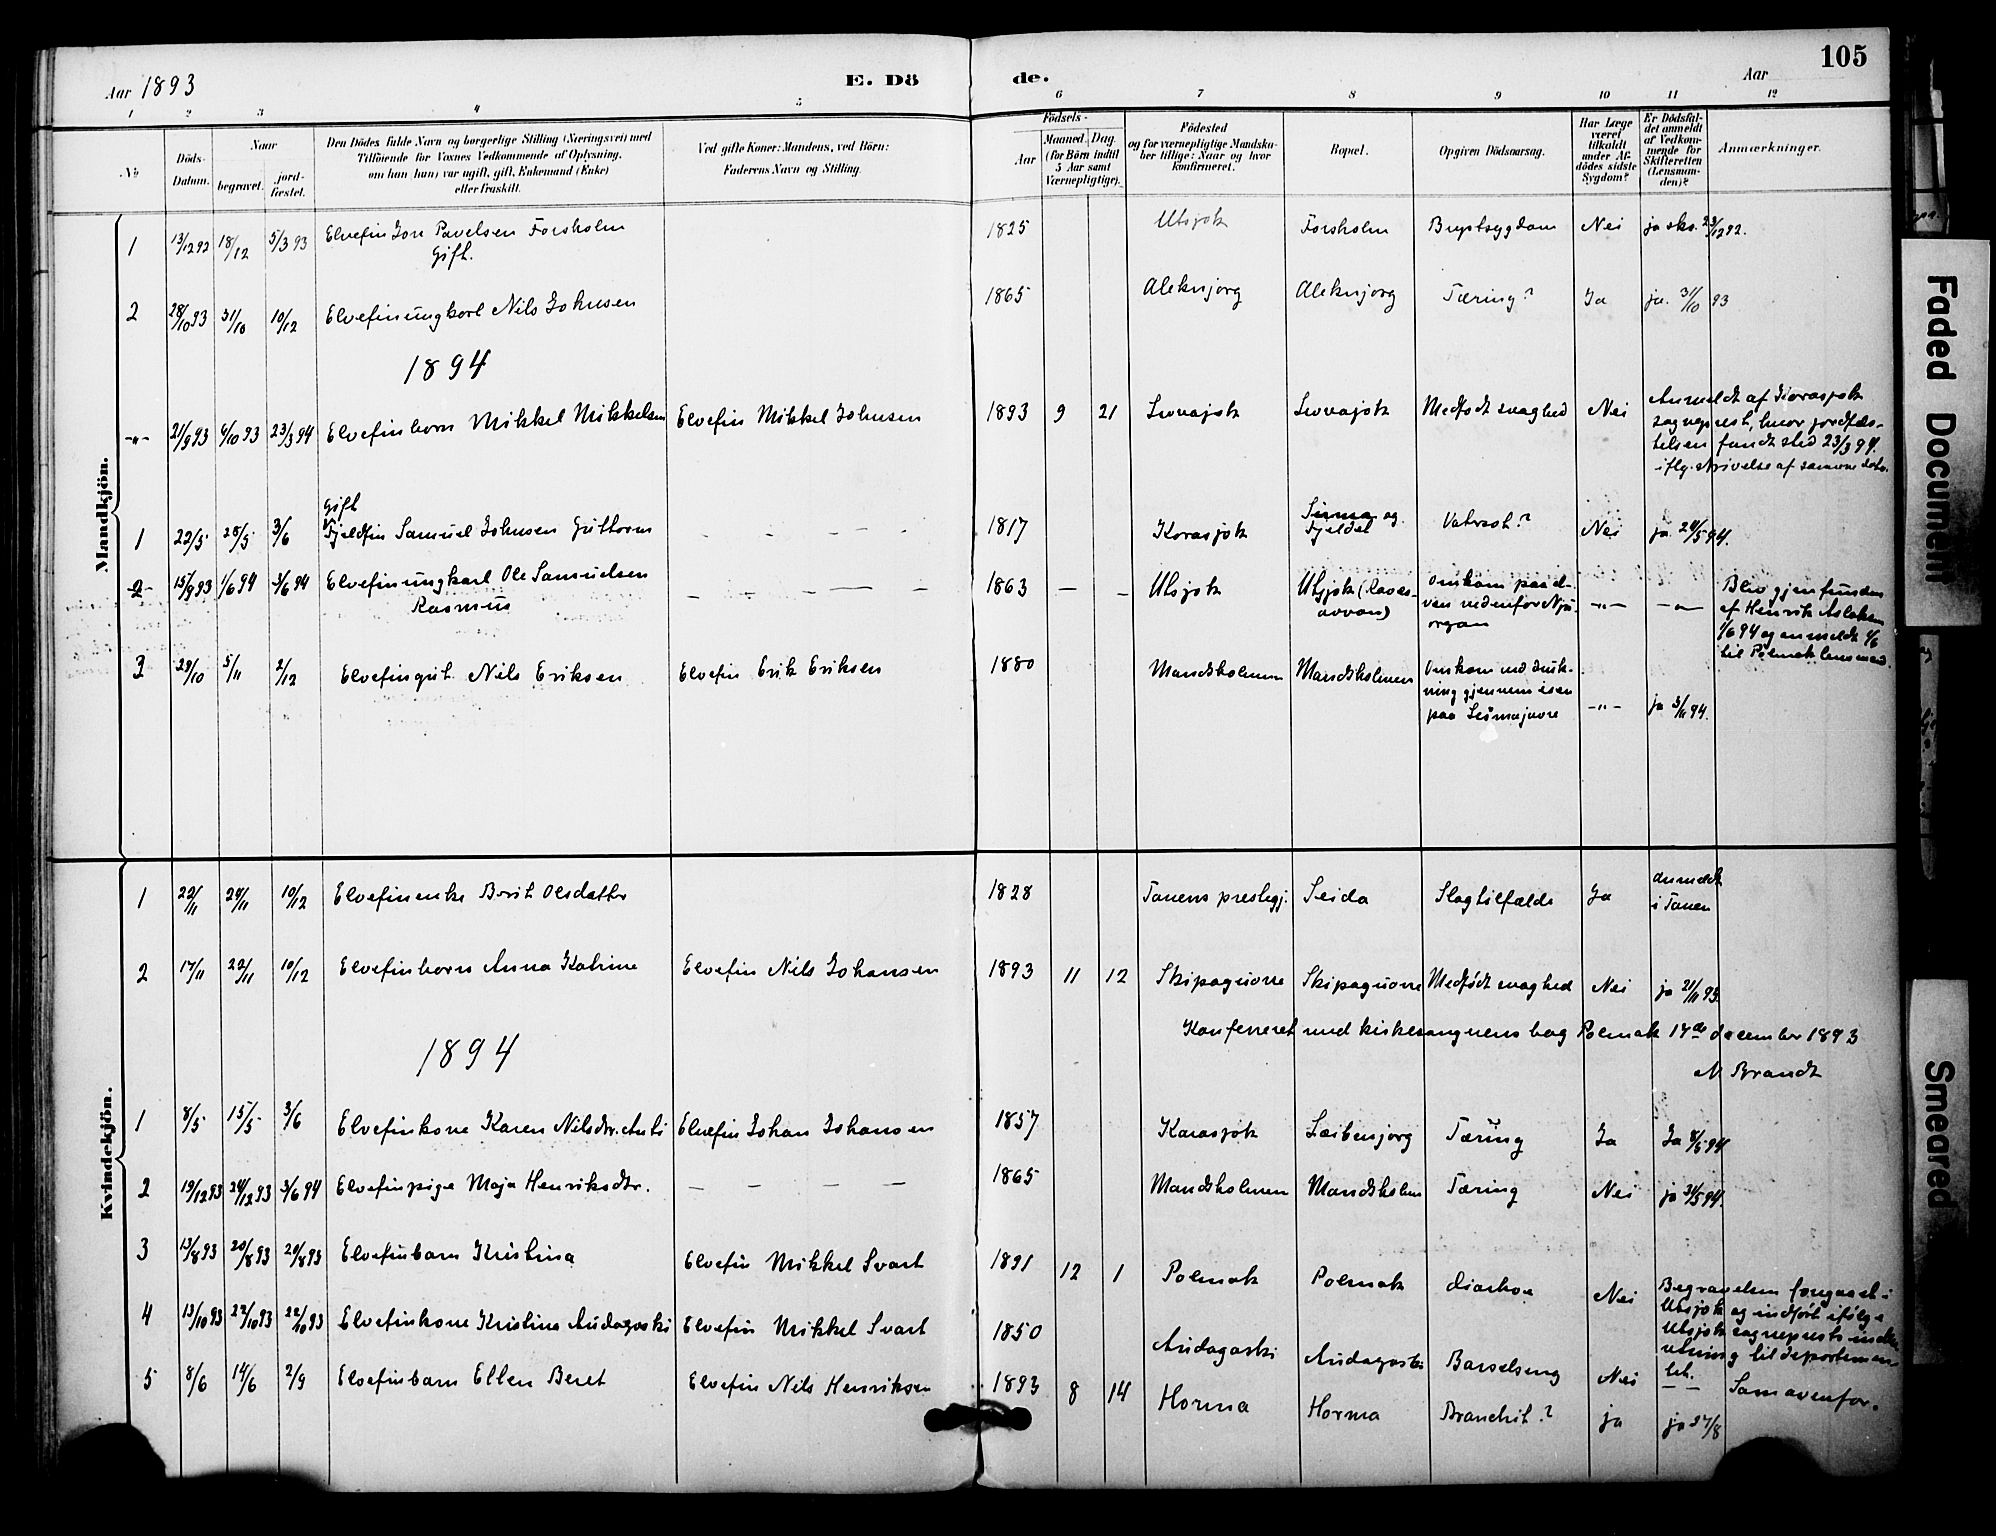 105
Aar 1893
E. Dö
de.
Aar
1 2 3 4 5 6 7 8 9 10 11 12
No
Döds-Datum.
Naar
begravet.
jord-fæstet.
Den Dödes fulde Navn og borgerlige Stilling (Næringsvei) med
Tilföiende for Voxnes Vedkommende af Oplysning,
om han (hun) var ugift, gift, Enkemand (Enke)
eller fraskilt.
Ved gifte Koner: Mandens, ved Börn:
Faderens Navn og Stilling.
Födsels-
Aar
Maaned. Dag.
(for Börn indtil
5 Aar samt
Værnepligtige).
Födested
og for værnepligtige Mandska-
ber tillige: Naar og hvor
konfirmeret.
Bopæl.
Opgiven Dödsaarsag.
Har Læge
været
tilkaldt
under Af-
dödes sidste
Sygdom?
Er Dödsfal-
det anmeldt
af Vedkom-
mende for
Skifteretten
(Lensman-
den)?
Anmærkninger.
Mandkjön.
1 13/12 92 18/12 5/3 93 Elvefin Jon Pavelsen Forsholm 1825 Utsjok Forsholm Brystsygdom Nei ja sks. 23/12 92.
Gift.
2 28/10 93 31/10 10/12 Elvefinungkarl Nils Johnsen 1865 Aleknjorg Aleknjorg Tæring? Ja ja. 31/10 93
1894
-"- 21/9 93 4/10 93 23/3 94 Elvefinbarn Mikkel Mikkelsen Elvefin Mikkel Johnsen 1893 9 21 Levvajok Levvajok Medfødt svaghed Nei Anmeldt af Karasjok
sogneprest, hvor jordfæs-
telsen fandt sted 23/3 94.
iflg. skrivelse af samme dato.
gift
1 22/5 28/5 3/6 Fjeldfin Samuel Johnsen Guttorm 1817 Korasjok Sirma og Fjeldet Vatersot? Nei ja 24/5 94.
2 15/9 93 1/6 94 3/6 94 Elvefinungkarl Ole Samuelsen Rasmus 1863 — — Utsjok Utsjok
Omkom paa el-
ven nedenfor
-"-
Blev gjenfunden
af Henrik Aslaksen
1/6 94 og anmeldt 4/6
til Polmak lensmand.
3 29/10 5/11 2/12 Elvefingut Nils Eriksen Elvefin Erik Eriksen 1880 Mandsholmen Mandsholmen Omkom ved druk-
ning gjennem isen
paa
-"- ja 3/11 94.
Kvindekjön.
1 22/11 29/11 10/12 Elvefinenke Berit Olsdatter 1828 Tanens prestegj. Seida Slagtilfælde Ja anmeldt
i Tanen
2 17/11 22/11 10/12 Elvefinbarn Anna Katrine Elvefin Nils Johansen 1893 11 12 Skipaguorre Skipaguorre Medfødt svaghed Nei ja 21/11 93.
Konfereret med kirkesangerens bog Polmak 17de december 1893
N Brandt
1894
1 8/5 15/5 3/6 Elvefinkone Karen Nilsdtr. Anti Elvefin Johan Johansen 1857 Karasjok Leibenjorg Tæring Ja Ja 8/5 94
2 19/12 93 24/12 93 3/6 94 Elvefinpige Maja Henriksdtr. — — — — 1865 Mandsholmen Mandsholm Tæring Nei ja 31/5 94.
3 13/8 93 20/8 93 20/8 93 Elvefinbarn Kristina Elvefin Mikkel Svart 1891 12 1 Polmak Polmak diarhoe Nei Begravelsen foregaaet i
Utsjok og indført ifølge
Utsjok sogneprests indbe-
retning til departemen-
tet.
4 13/10 93 22/10 93 22/10 93 Elvefinkone Kristine Audagaski Elvefin Mikkel Svart 1850 Audagaski Audagaski Barselseng Nei — — Som ovenfor.
5 8/6 14/6 2/9 Elvefinbarn Ellen Beret Elvefin Nils Henriksen 1893 8 14 Horma Horma Bronchit? ja ja 27/8
Faded Document
Smeared